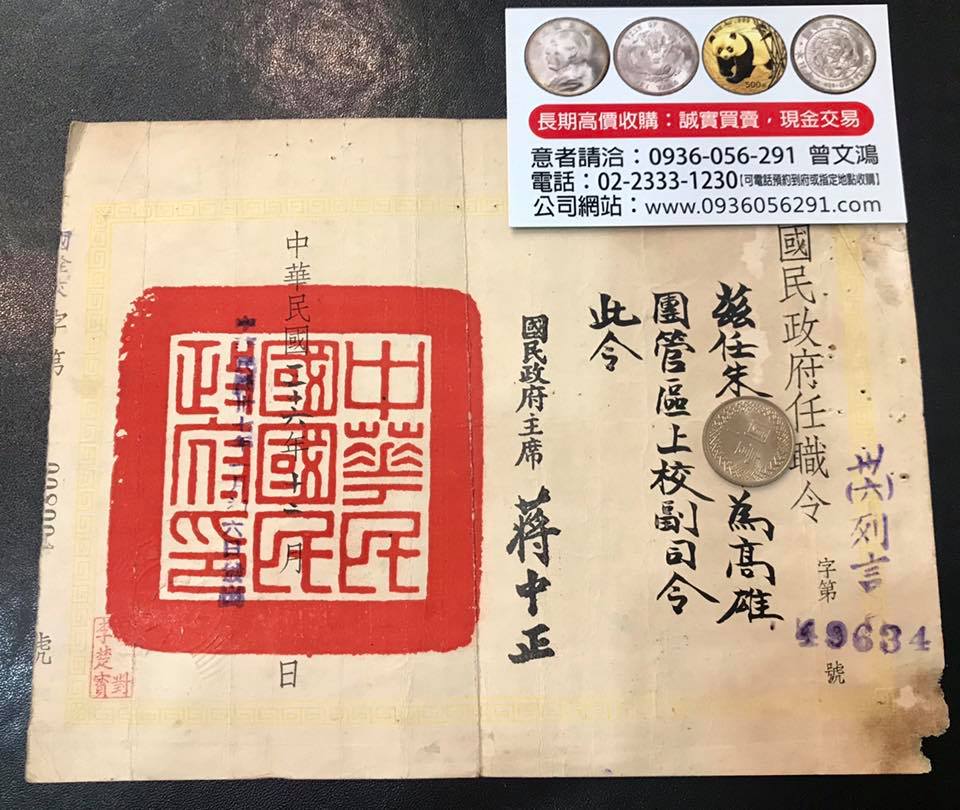 長期高價收購：誠實買賣，現金交易
意者請洽：0936-056-291 曾文鴻
電話：02-2333-1230【可電話預約到府或指定地點收購】
公司網站：www.0936056291.com
國民政府任職令
卅(六)列言
字第
49634
號
茲任朱
為高雄
團管區上校副司令
此令
國民政府主席 蔣中正
中華民國三十六年十二月
日
中華民
國國民
政府印
李楚寶
對
字第
號